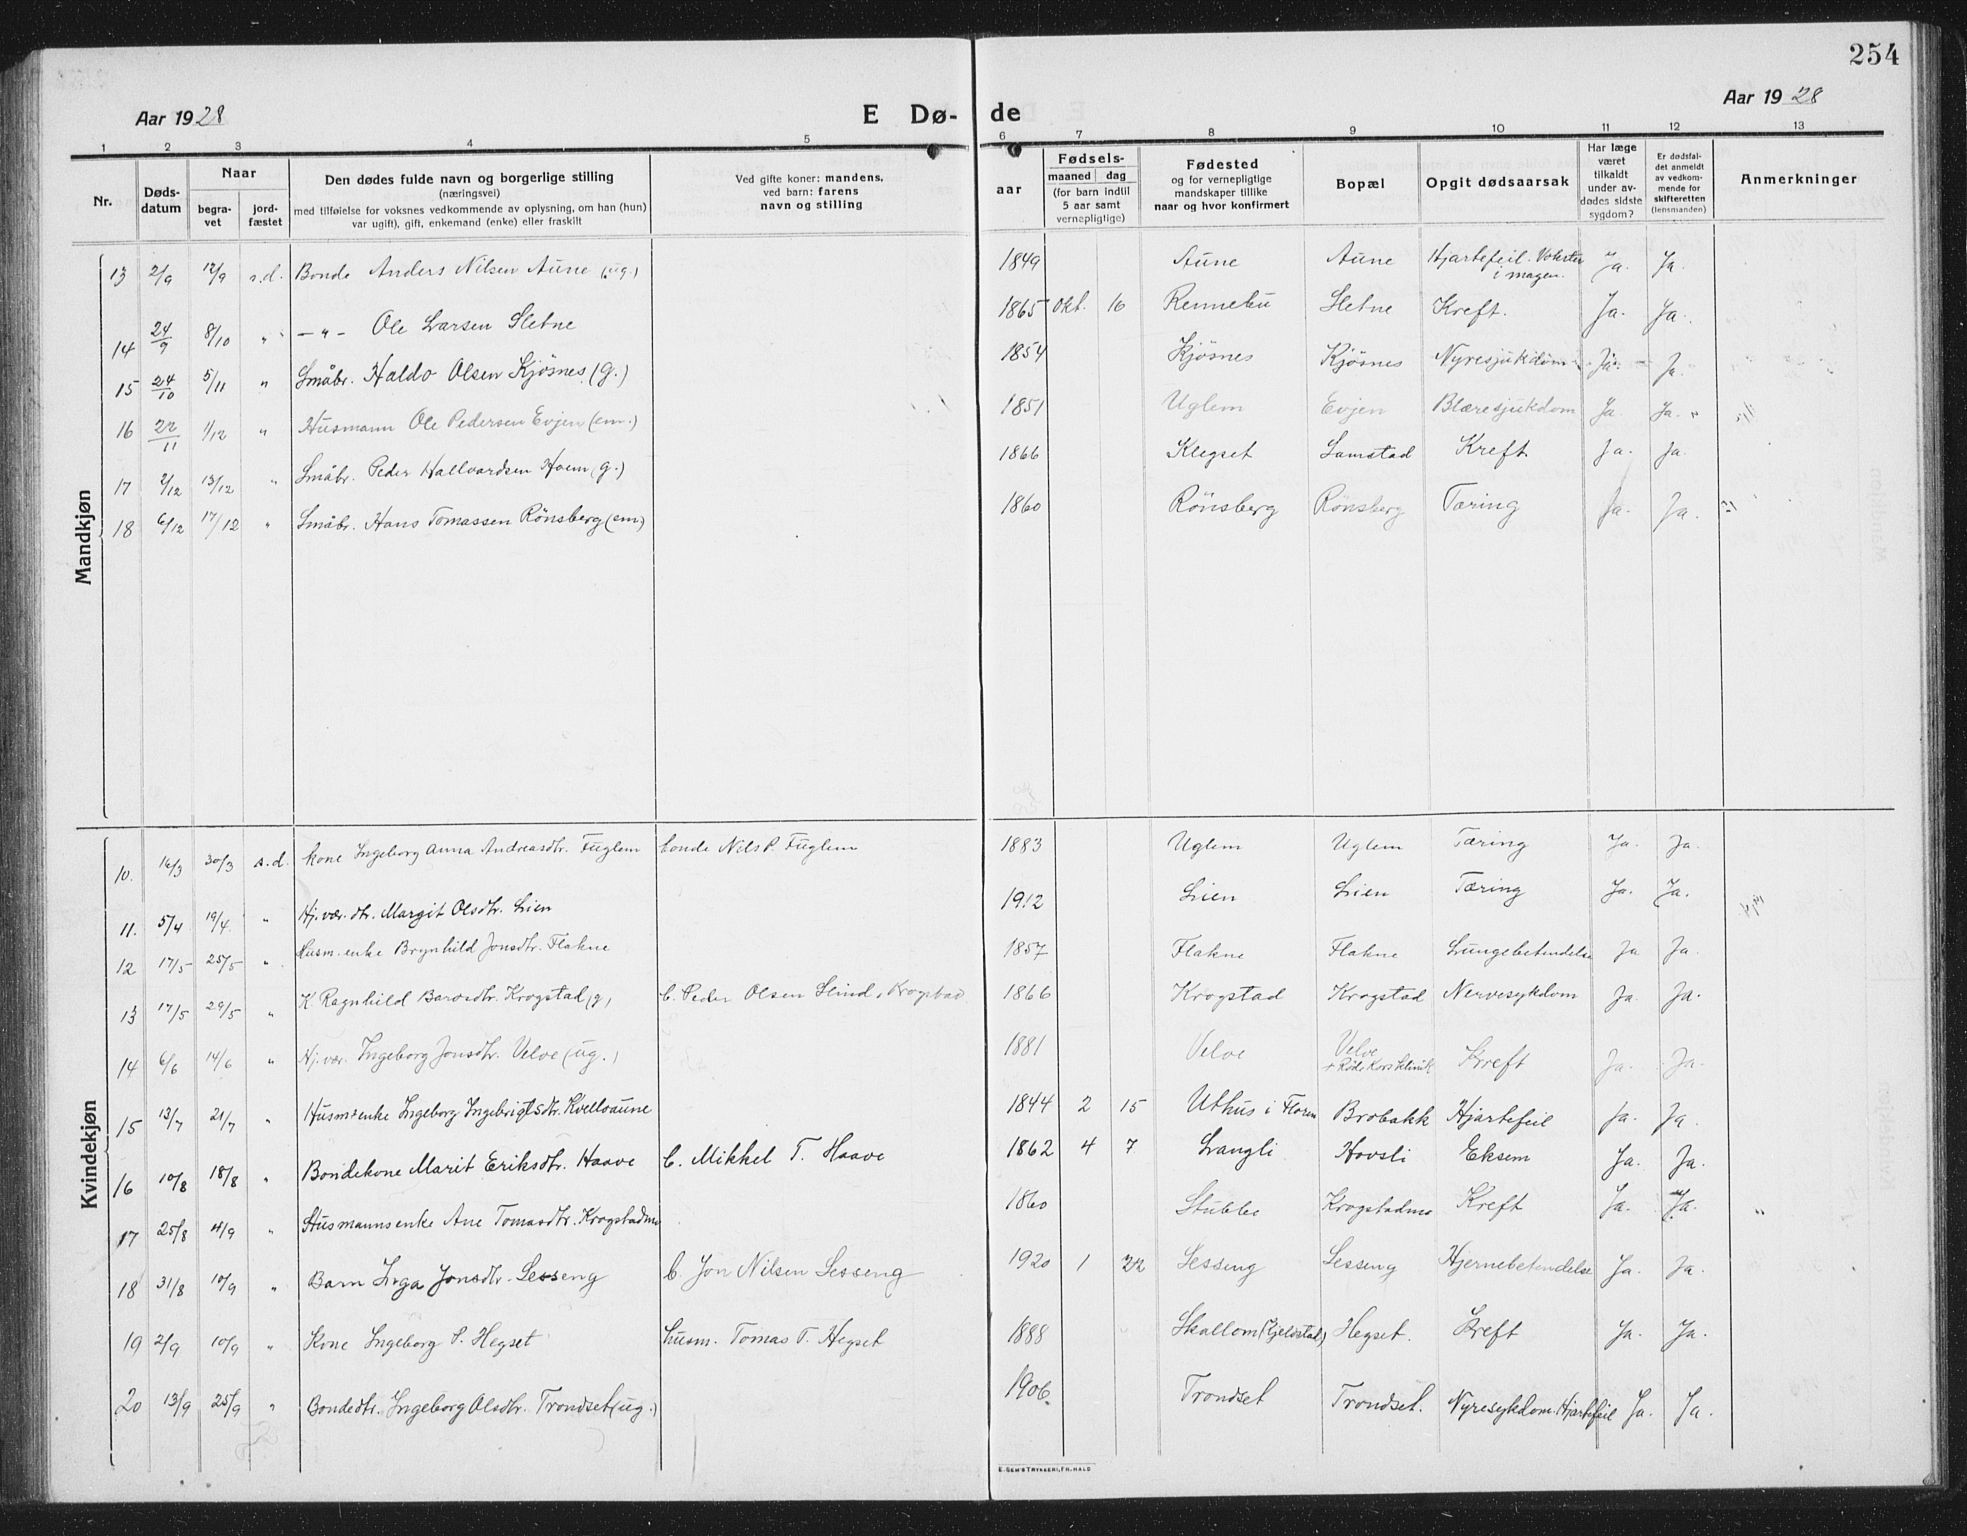 254
Aar 1928
E Dø-
de
Aar 1928
1 2 3 4 5 6 7 8 9 10 11 12 13
Nr.
Døds-
datum
Naar
begra-
vet
jord-
fæstet
Den dødes fulde navn og borgerlige stilling
(næringsvei)
med tilføielse for voksnes vedkommende av oplysning, om han (hun)
var ugift), gift, enkemand (enke) eller fraskilt
Ved gifte koner: mandens,
ved barn: farens
navn og stilling
aar
Fødsels-
maaned dag
(for barn indtil
5 aar samt
vernepligtige)
Fødested
og for vernepligtige
mandskaper tillike
naar og hvor konfirmert
Bopæl
Opgit dødsaarsak
Har læge
været
tilkaldt
under av-
dødes sidste
sygdom?
Er dødsfal-
det anmeldt
av vedkom-
mende for
skifteretten
(lensmanden)
Anmerkninger
Mandkjøn
13 2/9 12/9 s.d. Bonde Anders Nilsen Aune (ug.) 1849 Aune Aune Hjartefeil. Vokster i magen. Ja. Ja.
14 24/9 8/10 " -"- Ole Larsen Sletne 1865 Okt. 16 Rennebu Sletne Kreft. Ja. Ja.
15 24/10 5/11 " Småbr. Haldo Olsen Kjøsnes (g.) 1854 Kjøsnes Kjøsnes Nyresjukdom Ja. Ja.
16 22/11 1/12 " Husmann Ole Pedersen Evjen (em.) 1851 Uglem Evjen Blæresjukdom Ja. Ja.
17 2/12 13/12 " Småbr. Peder Hallvardsen Hoem (g.) 1866 Klegset Samstad Kreft Ja. Ja.
18 6/12 17/12 " Småbr. Hans Tomassen Rønsberg (em) 1860 Rønsberg Rønsberg Tæring Ja. Ja.
Kvindekjøn
10. 16/3 30/3 s.d. kone Ingeborg Anna Andreasdtr. Fuglem bonde Nils P. Fuglem 1883 Uglem Uglem Tæring Ja. Ja.
11. 5/4 19/4. " Hj.vær. dtr. Margit Olsdtr. Lien 1912 Lien Lien Tæring Ja. Ja.
12 17/5 25/5 " Husm. enke Brynhild Jonsdtr. Flakne 1857 Flakne Flakne Lungebetendelse Ja Ja.
13 17/5 29/5 " K Ragnhild Barosdtr. Krogstad (g) b. Peder Olsen Slind, Krogstad 1866 Krogstad Krogstad Nervesykdom Ja. Ja.
14 6/6 14/6 " Hj.vær. Ingeborg Jonsdtr. Velve (ug.) 1881 Velve Velve + Røde Kors klinik Kreft Ja. Ja.
15 13/7 21/7 " Husm.enke Ingeborg Ingebrigtsdtr. Kvelloaune 1844 2 15 Uthus i Floren Brobakk Hjartefeil Ja. Ja.
16 10/8 18/8 " Bondekone Marit Eriksdtr. Haave b. Mikkel T. Haave 1862 4 7 Langli Hovsli Eksem Ja. Ja.
17 25/8 4/9 " Husmannsenke Ane Tomasdtr. Krogstadmo 1860 Stubbe Krogstadmo Kreft Ja. Ja. "
18 31/8 10/9 " Barn Inga Jonsdtr. Sesseng b. Jon Nilsen Sesseng 1920 1 22 Sesseng Sesseng Hjernebetendelse Ja. Ja.
19 2/9 10/9 " Kone Ingeborg P. Hegset husm. Tomas T. Hegset 1888 Skallom (Tjeldstal) Hegset. Kreft Ja. Ja.
20 13/9 25/9 " Bondedtr. Ingeborg Olsdtr. Trondset (ug.) 1906. Trondset Trondset. Nyresykdom. Hjartefeil Ja. Ja.
E. SEM'S TRYKKERI, FR.HALD